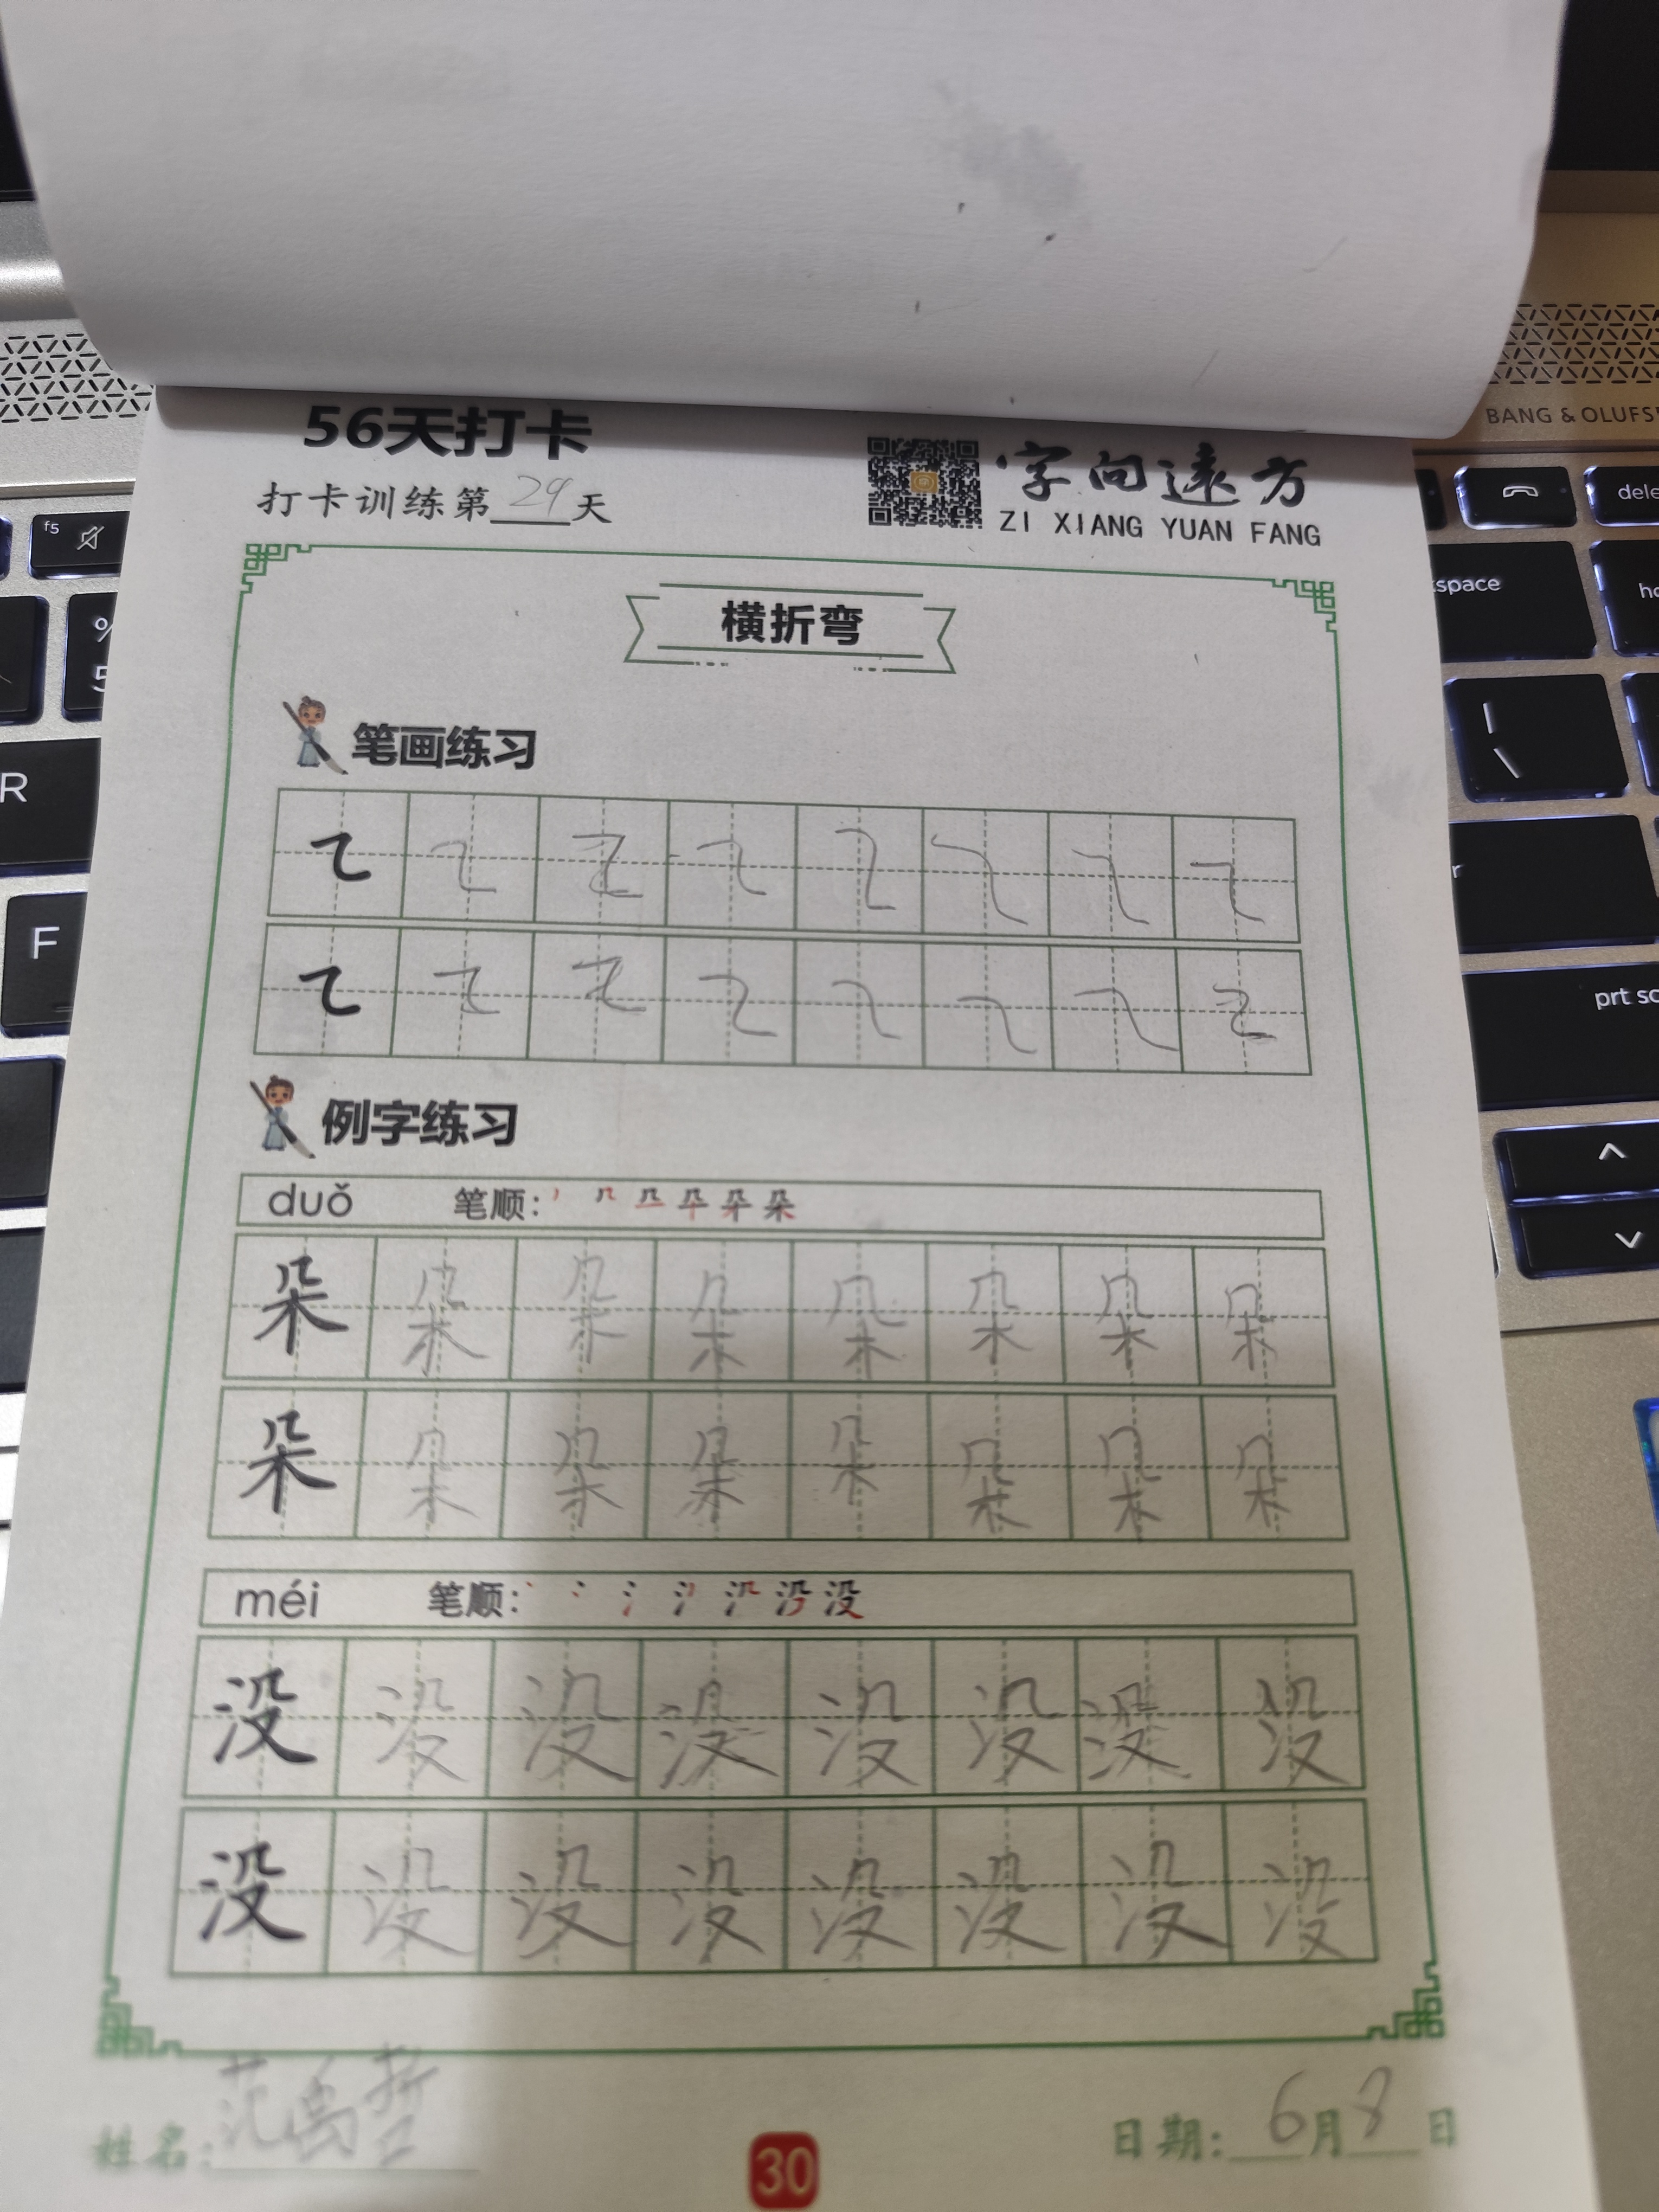 56天打卡
打卡训练第29天
字向遠方
ZI XIANG YUAN FANG
横折弯
笔画练习
例字练习
duǒ 笔顺：
朵 朵 朵 朵 朵 朵 朵 朵
朵 朵 朵 朵 朵 朵 朵 朵
méi 笔顺： 没
没 没 没 没 没 没 没 没
没 没 没 没 没 没 没 没
姓名：范禹哲
日期：6月8日
30
BANG & OLUFS
f5
dele
space
%
5
R
F
prt sc